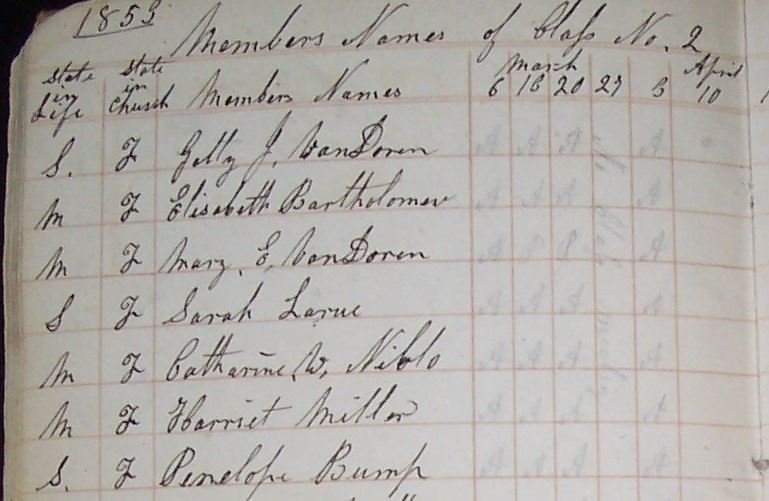 1853
Members Names of Class No. 2
State in Life State in Church Members Names March 6 13 20 27 3 April 10
S. F Getty J. VanDoren A A A A
M F Elisebeth Bartholomew A A A A
M F Mary. E. VanDoren A P P A
S F Sarah Larue A A A A
M F Catharine. W. Niblo A A A A
M F Harriet Miller A A A A
S. F Penelope Bump A A A A